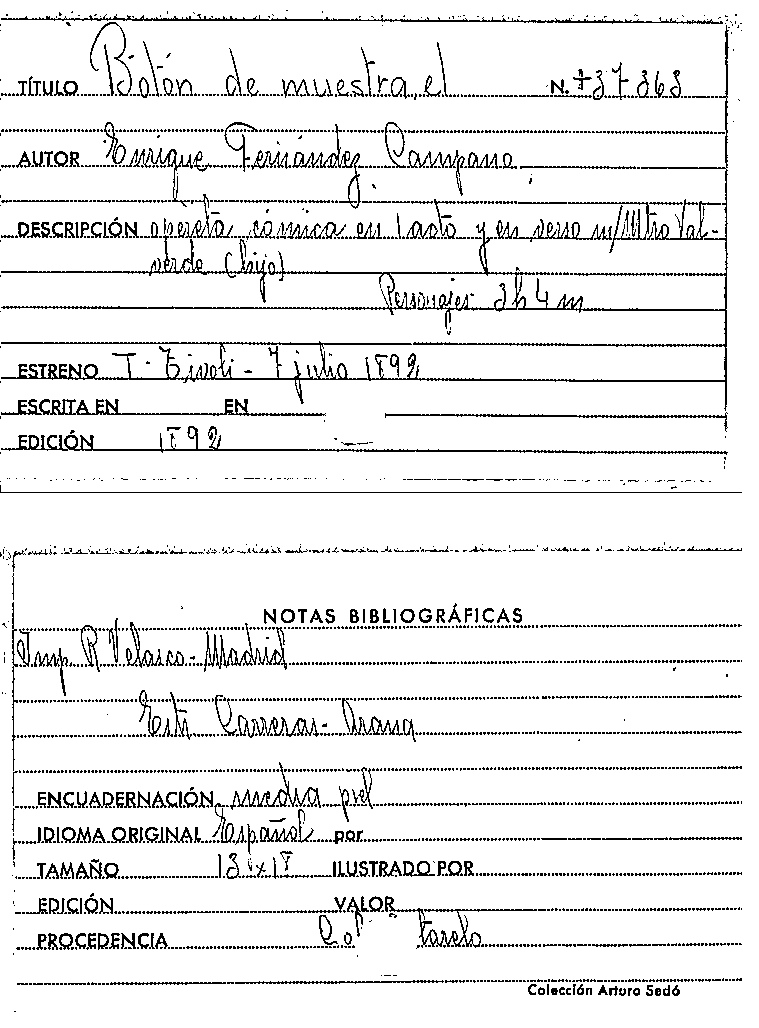 TÍTULO Botón de muestra, el N. 37363
AUTOR Enrique Fernández Campano
DESCRIPCIÓN opereta cómica en 1 acto y en verso m/Mtro Val-
verde (hijo)
Personajes 3h 4m
ESTRENO T. Tívoli - 7 julio 1892
ESCRITA EN EN
EDICIÓN 1892
NOTAS BIBLIOGRÁFICAS
Imp. R Velasco - Madrid
Carreras - Arana
ENCUADERNACIÓN media piel
IDIOMA ORIGINAL Español por
TAMAÑO ILUSTRADO POR
EDICIÓN VALOR
PROCEDENCIA
Colección Arturo Sedó